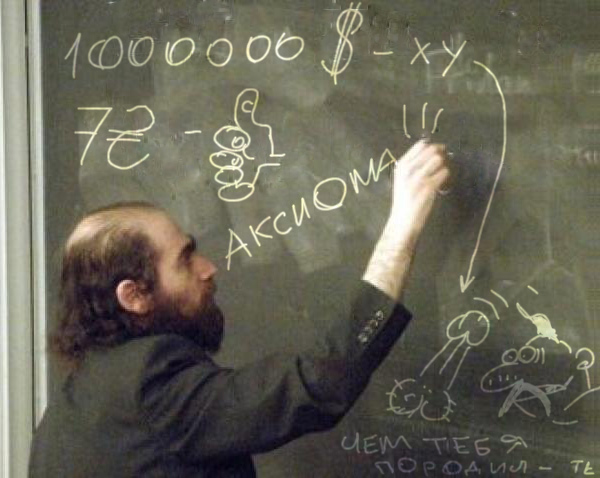 1000000 $ - ху
7₴ -
АКСИОМА
ЧЕМ ТЕБЯ
ПОРОДИЛ - ТЕ